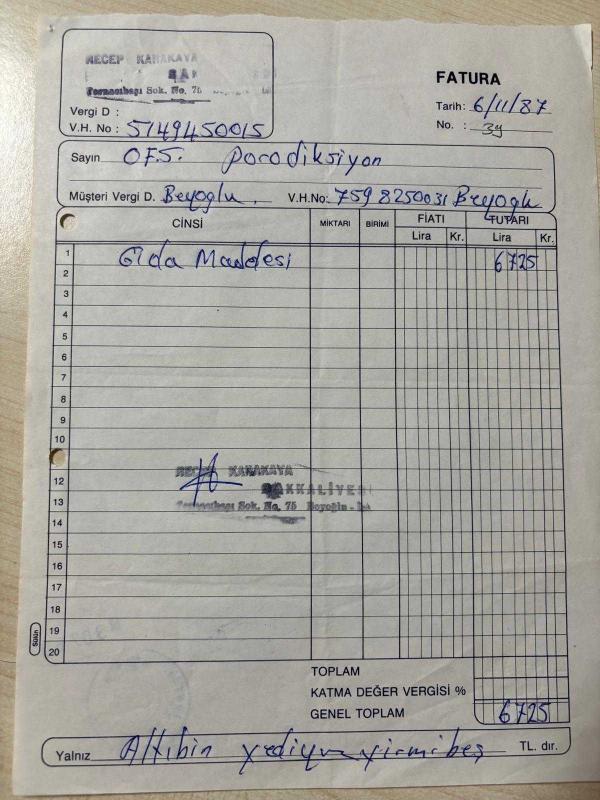 RECEP KARAKAYA
Ternacıbaşı Sok. No. 75
FATURA
Vergi D :
Tarih: 6/11/87
V.H. No : 5149450015
No. : 39
Sayın O.F.S. porodiksiyon
Müşteri Vergi D. Beyoglu. V.H.No: 759 8250031 Beyoglu
CİNSİ MİKTARI BİRİMİ FİATI TUTARI
Lira Kr. Lira Kr.
1 Gıda Maddesi 6725
2
3
4
5
6
7
8
9
10
12
RECEP KARAKAYA
BAKKALİYESİ
13
Ternacıbaşı Sok. No. 75 Beyoğlu - İst
14
15
16
17
18
19
20
Sülün
TOPLAM
KATMA DEĞER VERGİSİ %
GENEL TOPLAM 6725
Yalnız Altıbin yediyüzyirmibeş TL. dır.